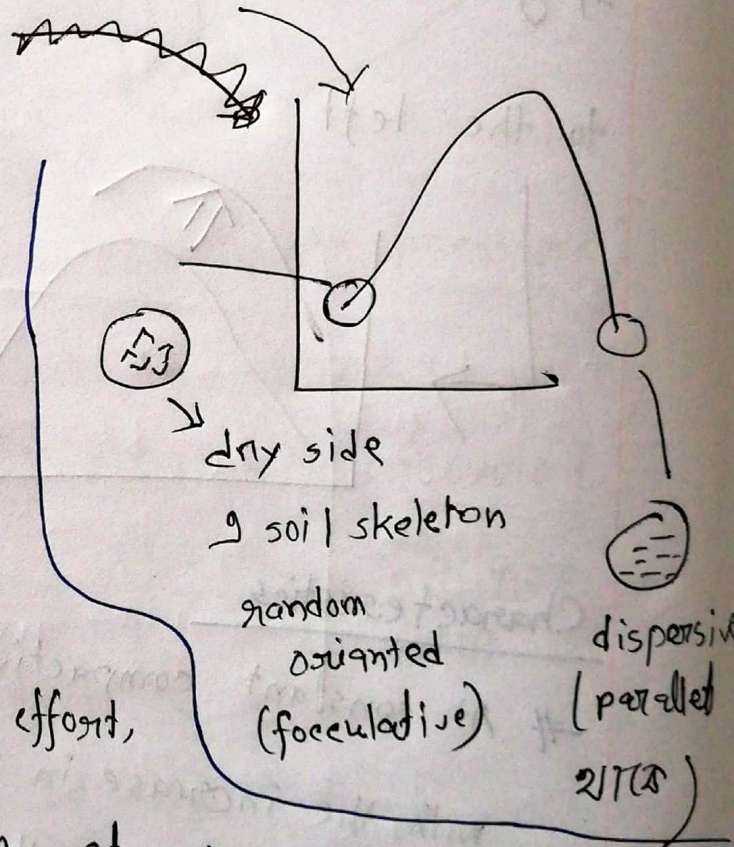 dry side
এ soil skeleton
random
orianted
(focculative)
dispersiv
(parallel
থাকে)
effort,